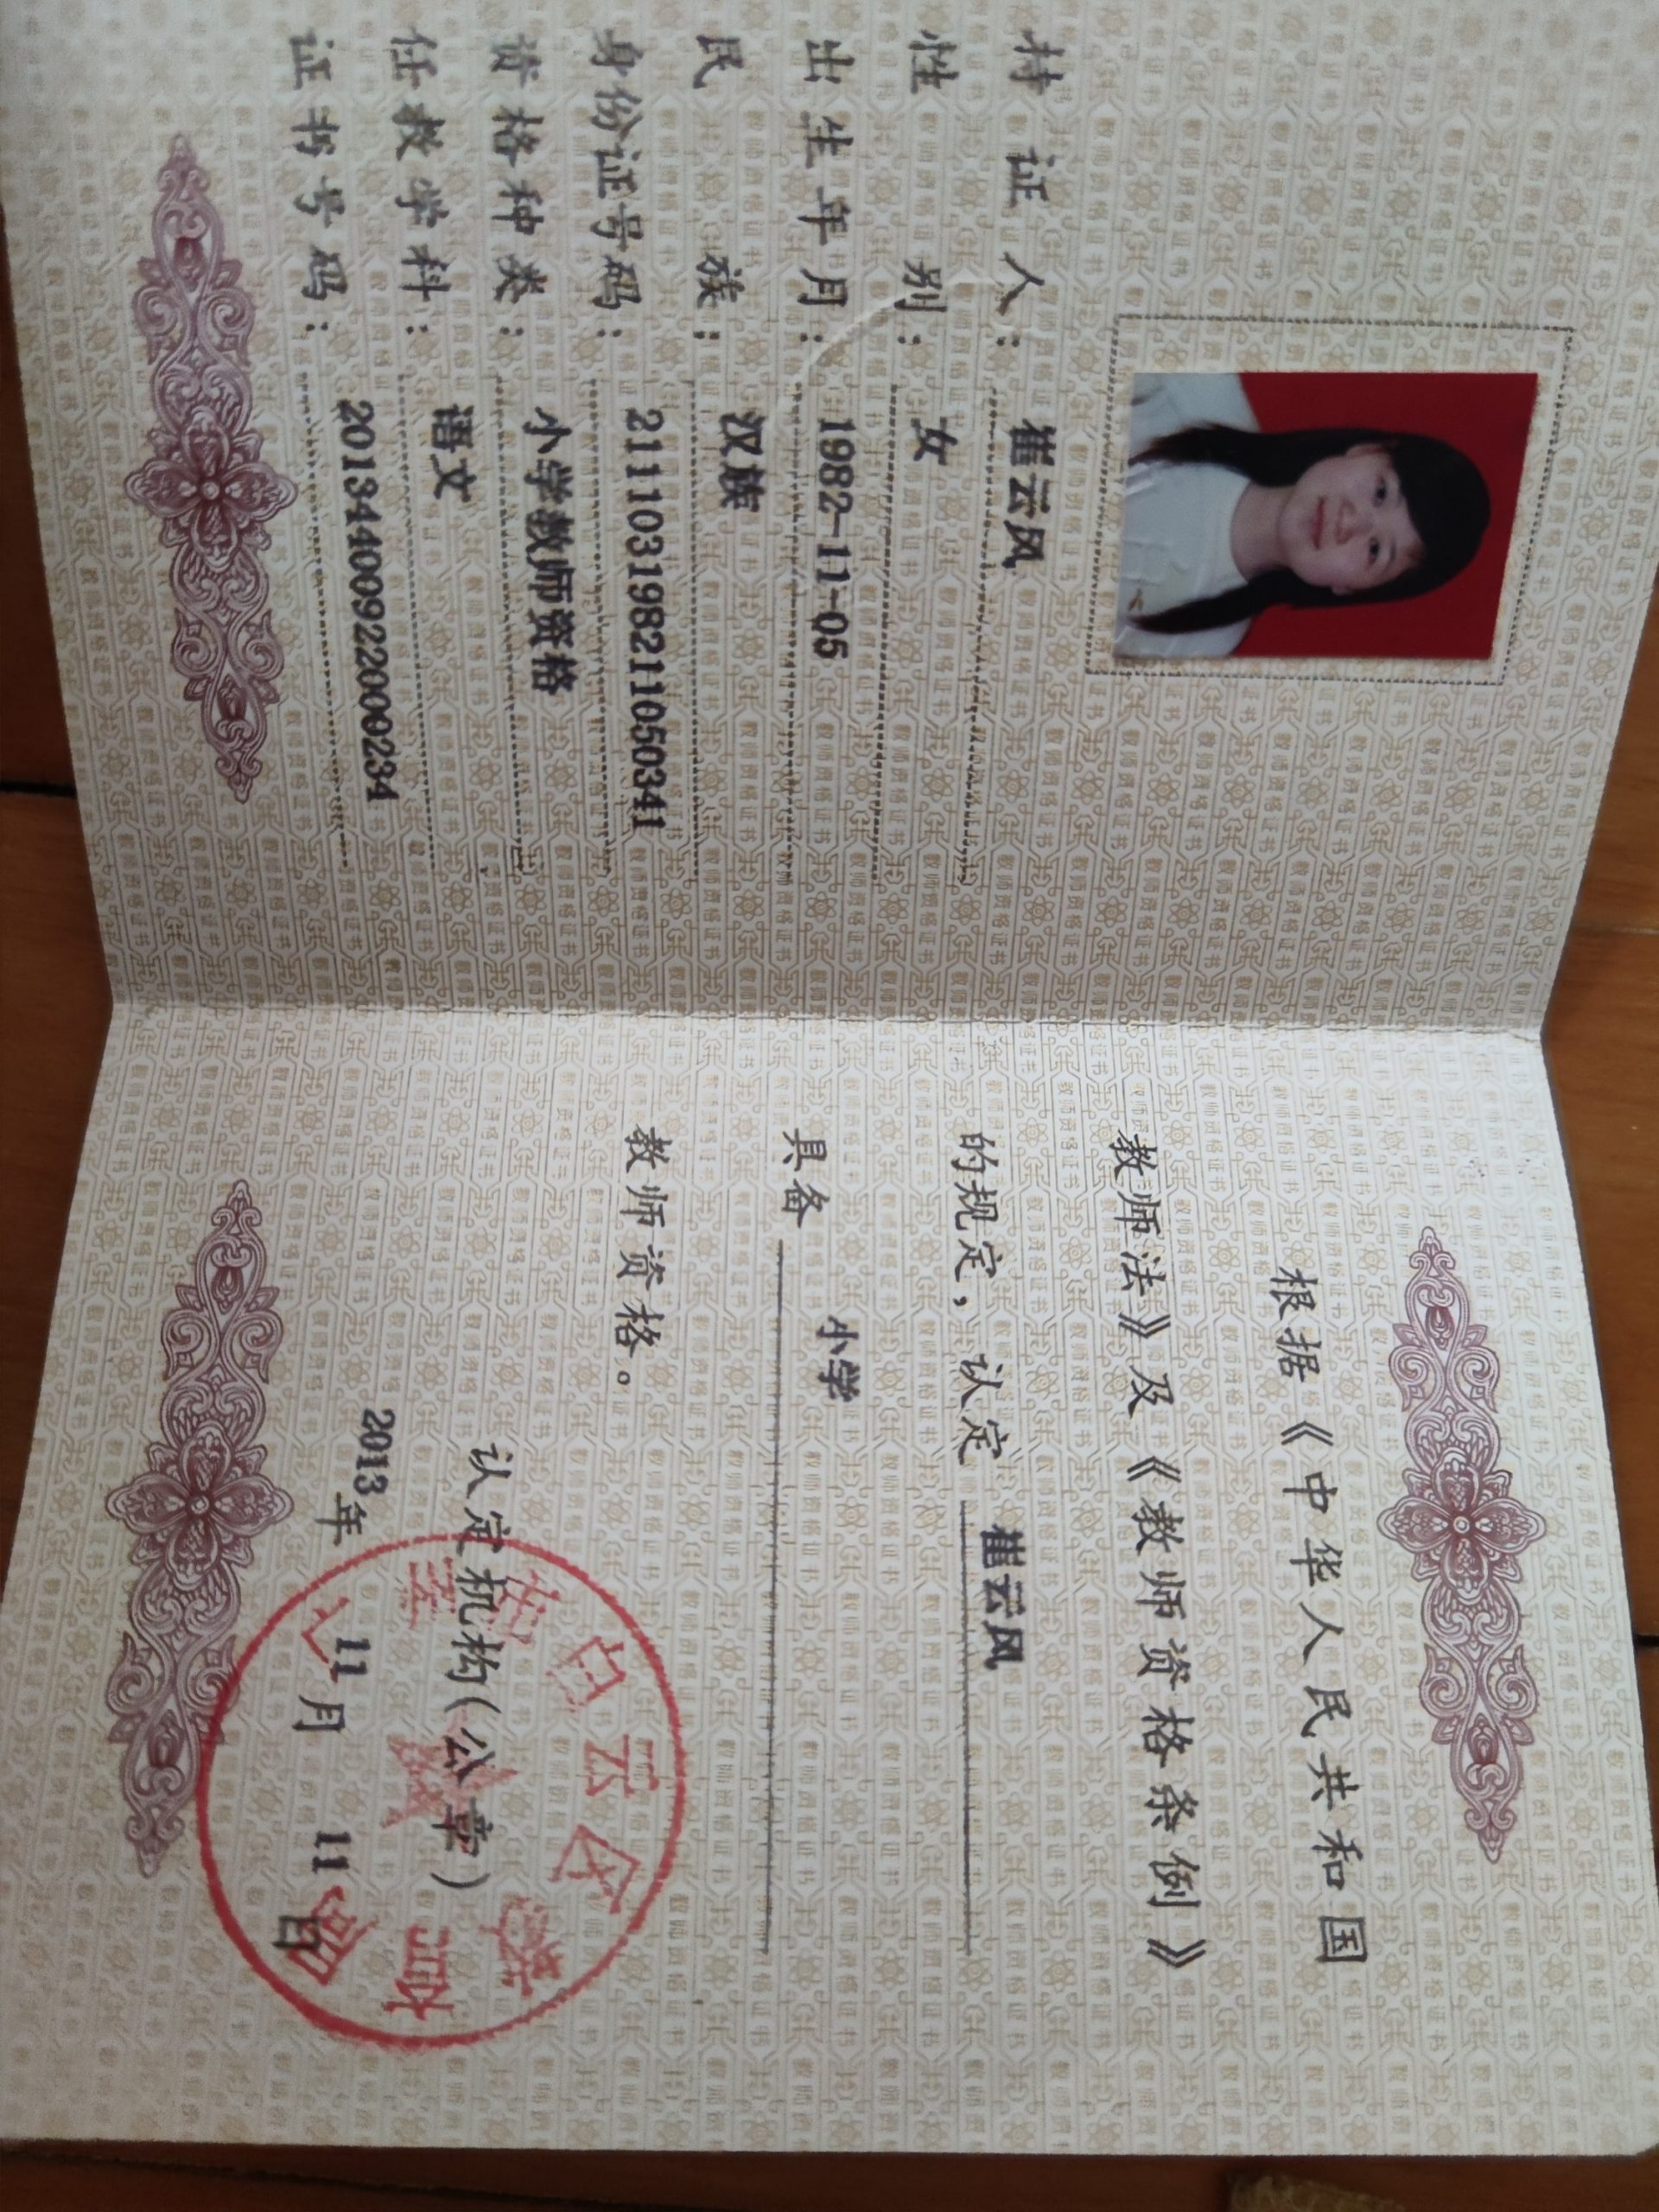 持证人：崔云风
性别：女
出生年月：1982-11-05
民族：汉族
身份证号码：211103198211050341
资格种类：小学教师资格
任教学科：语文
证书号码：20134400922000234
根据《中华人民共和国
教师法》及《教师资格条例》
的规定，认定 崔云风
具备 小学
教师资格。
认定机构(公章)
2013年 11月 11日